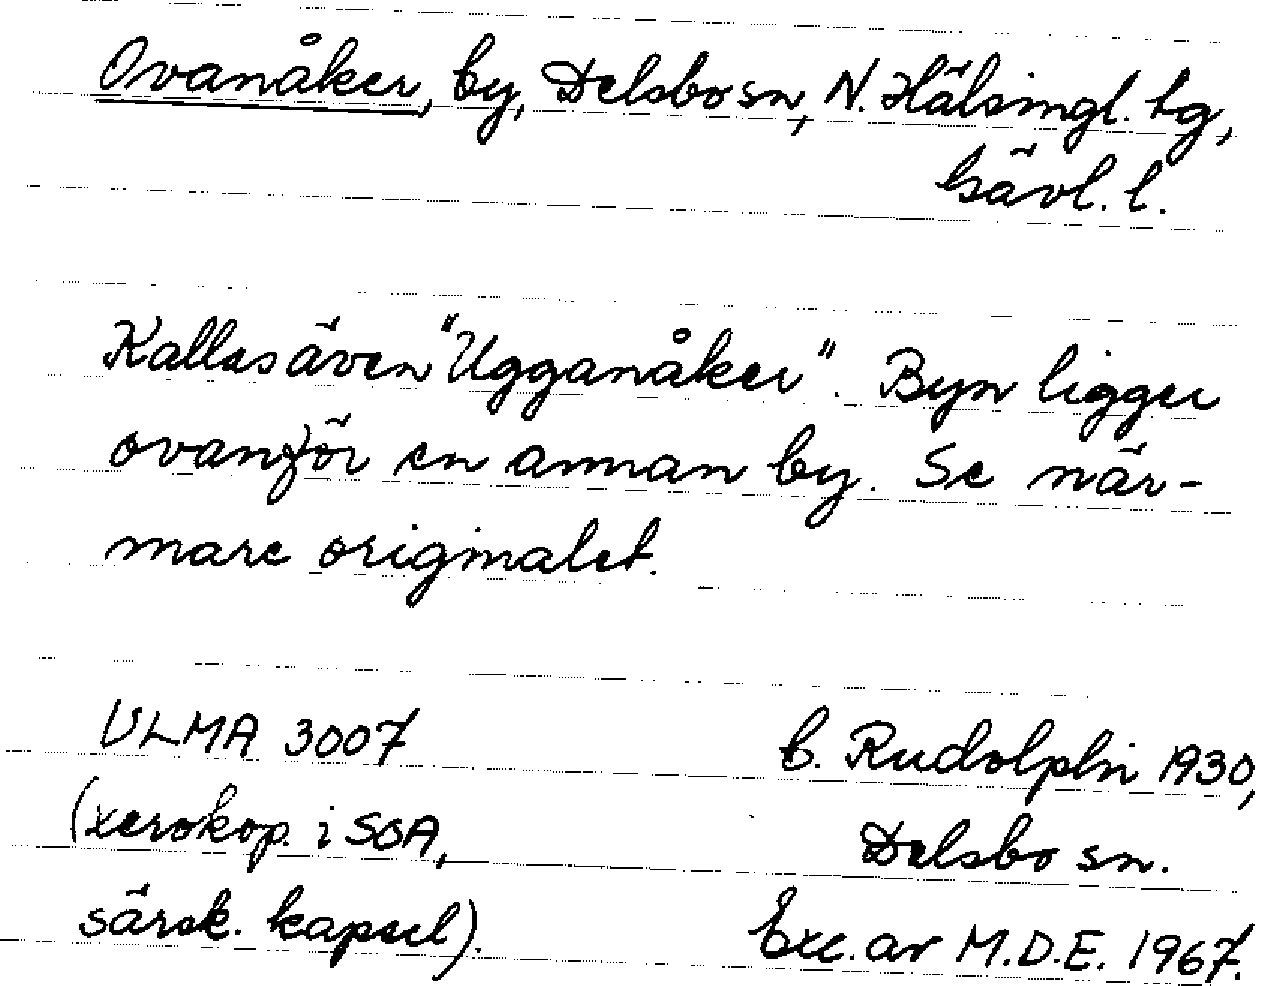 Ovanåker, by, Delsbo sn, N. Hälsingl. tg,
Gävl. l.
Kallas även "Ugganåker". Byn ligger
ovanför en annan by. Se när-
mare originalet.
ULMA 3007
(xerokop. i SOA,
särsk. kapsel).
G. Rudolphi 1930,
Delsbo sn.
Exc. av M.D.E. 1967.